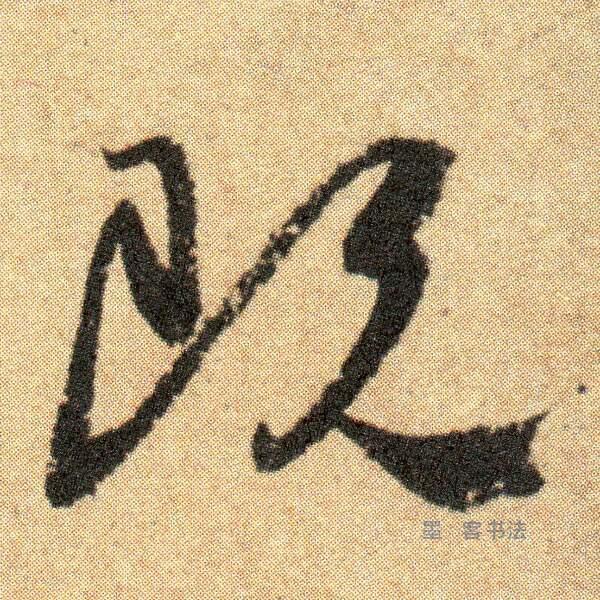 改
墨 客书法